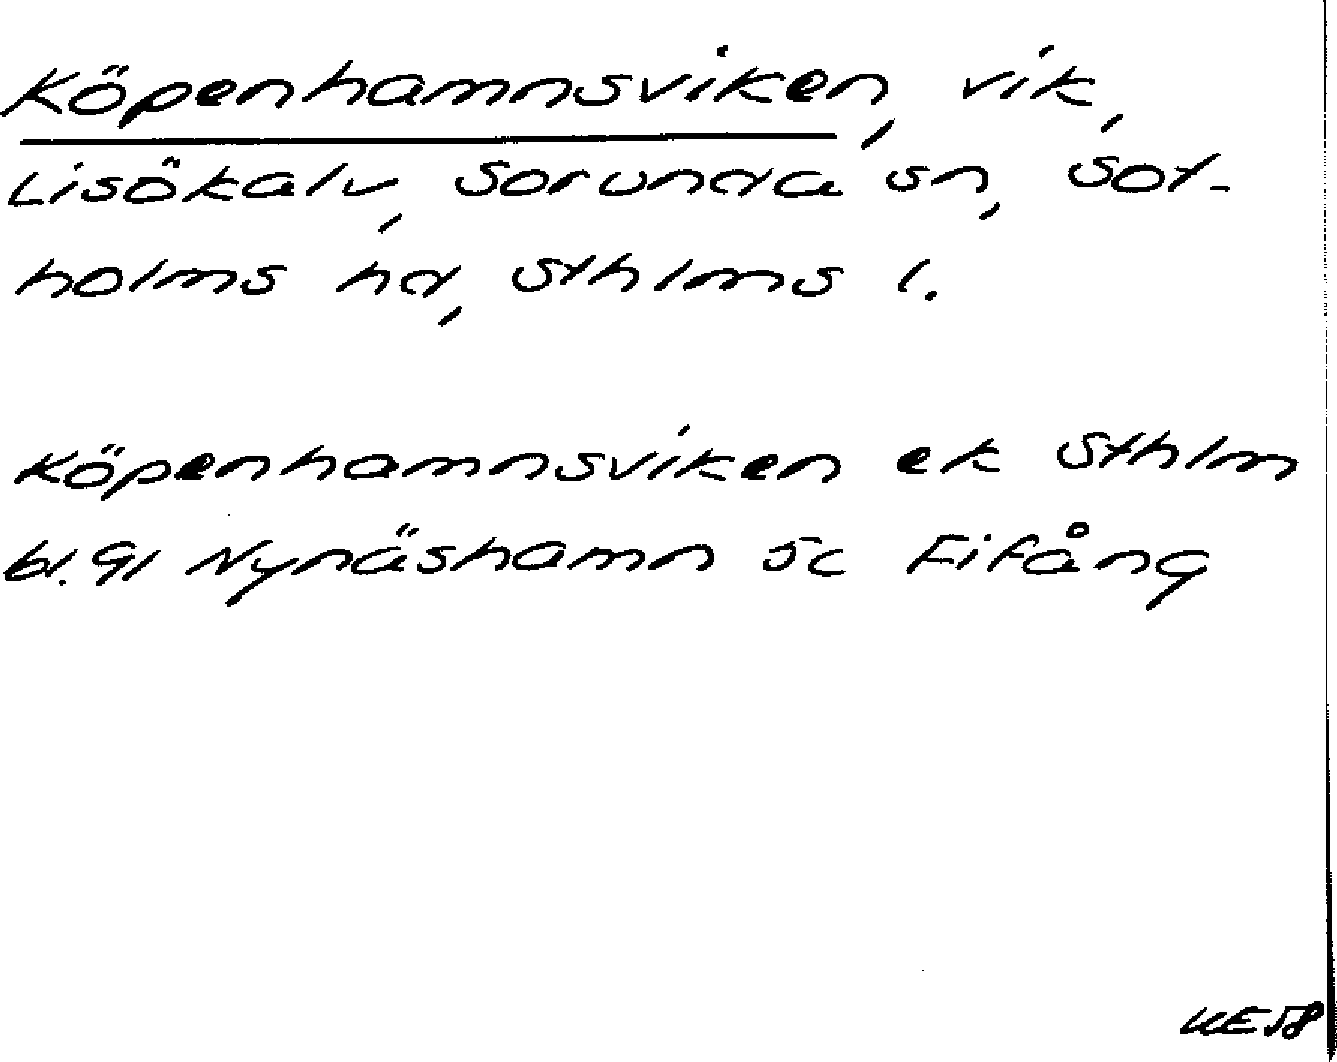 Köpenhamnsviken, vik,
Lisökalv, Sorunda sn, Sot-
holms hd, Sthlms l.
Köpenhamnsviken ek Sthlm
bl. 91 Nynäshamn 5c Fifång
KE 58